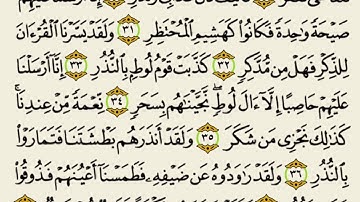 صَيْحَةً وَٰحِدَةً فَكَانُوا۟ كَهَشِيمِ ٱلْمُحْتَظِرِ ٣١ وَلَقَدْ يَسَّرْنَا ٱلْقُرْءَانَ
لِلذِّكْرِ فَهَلْ مِن مُّدَّكِرٍ ٣٢ كَذَّبَتْ قَوْمُ لُوطٍۭ بِٱلنُّذُرِ ٣٣ إِنَّآ أَرْسَلْنَا
عَلَيْهِمْ حَاصِبًا إِلَّآ ءَالَ لُوطٍ ۖ نَّجَّيْنَـٰهُم بِسَحَرٍ ٣٤ نِّعْمَةً مِّنْ عِندِنَا ۚ
كَذَٰلِكَ نَجْزِى مَن شَكَرَ ٣٥ وَلَقَدْ أَنذَرَهُم بَطْشَتَنَا فَتَمَارَوْا۟
بِٱلنُّذُرِ ٣٦ وَلَقَدْ رَٰوَدُوهُ عَن ضَيْفِهِۦ فَطَمَسْنَآ أَعْيُنَهُمْ فَذُوقُوا۟